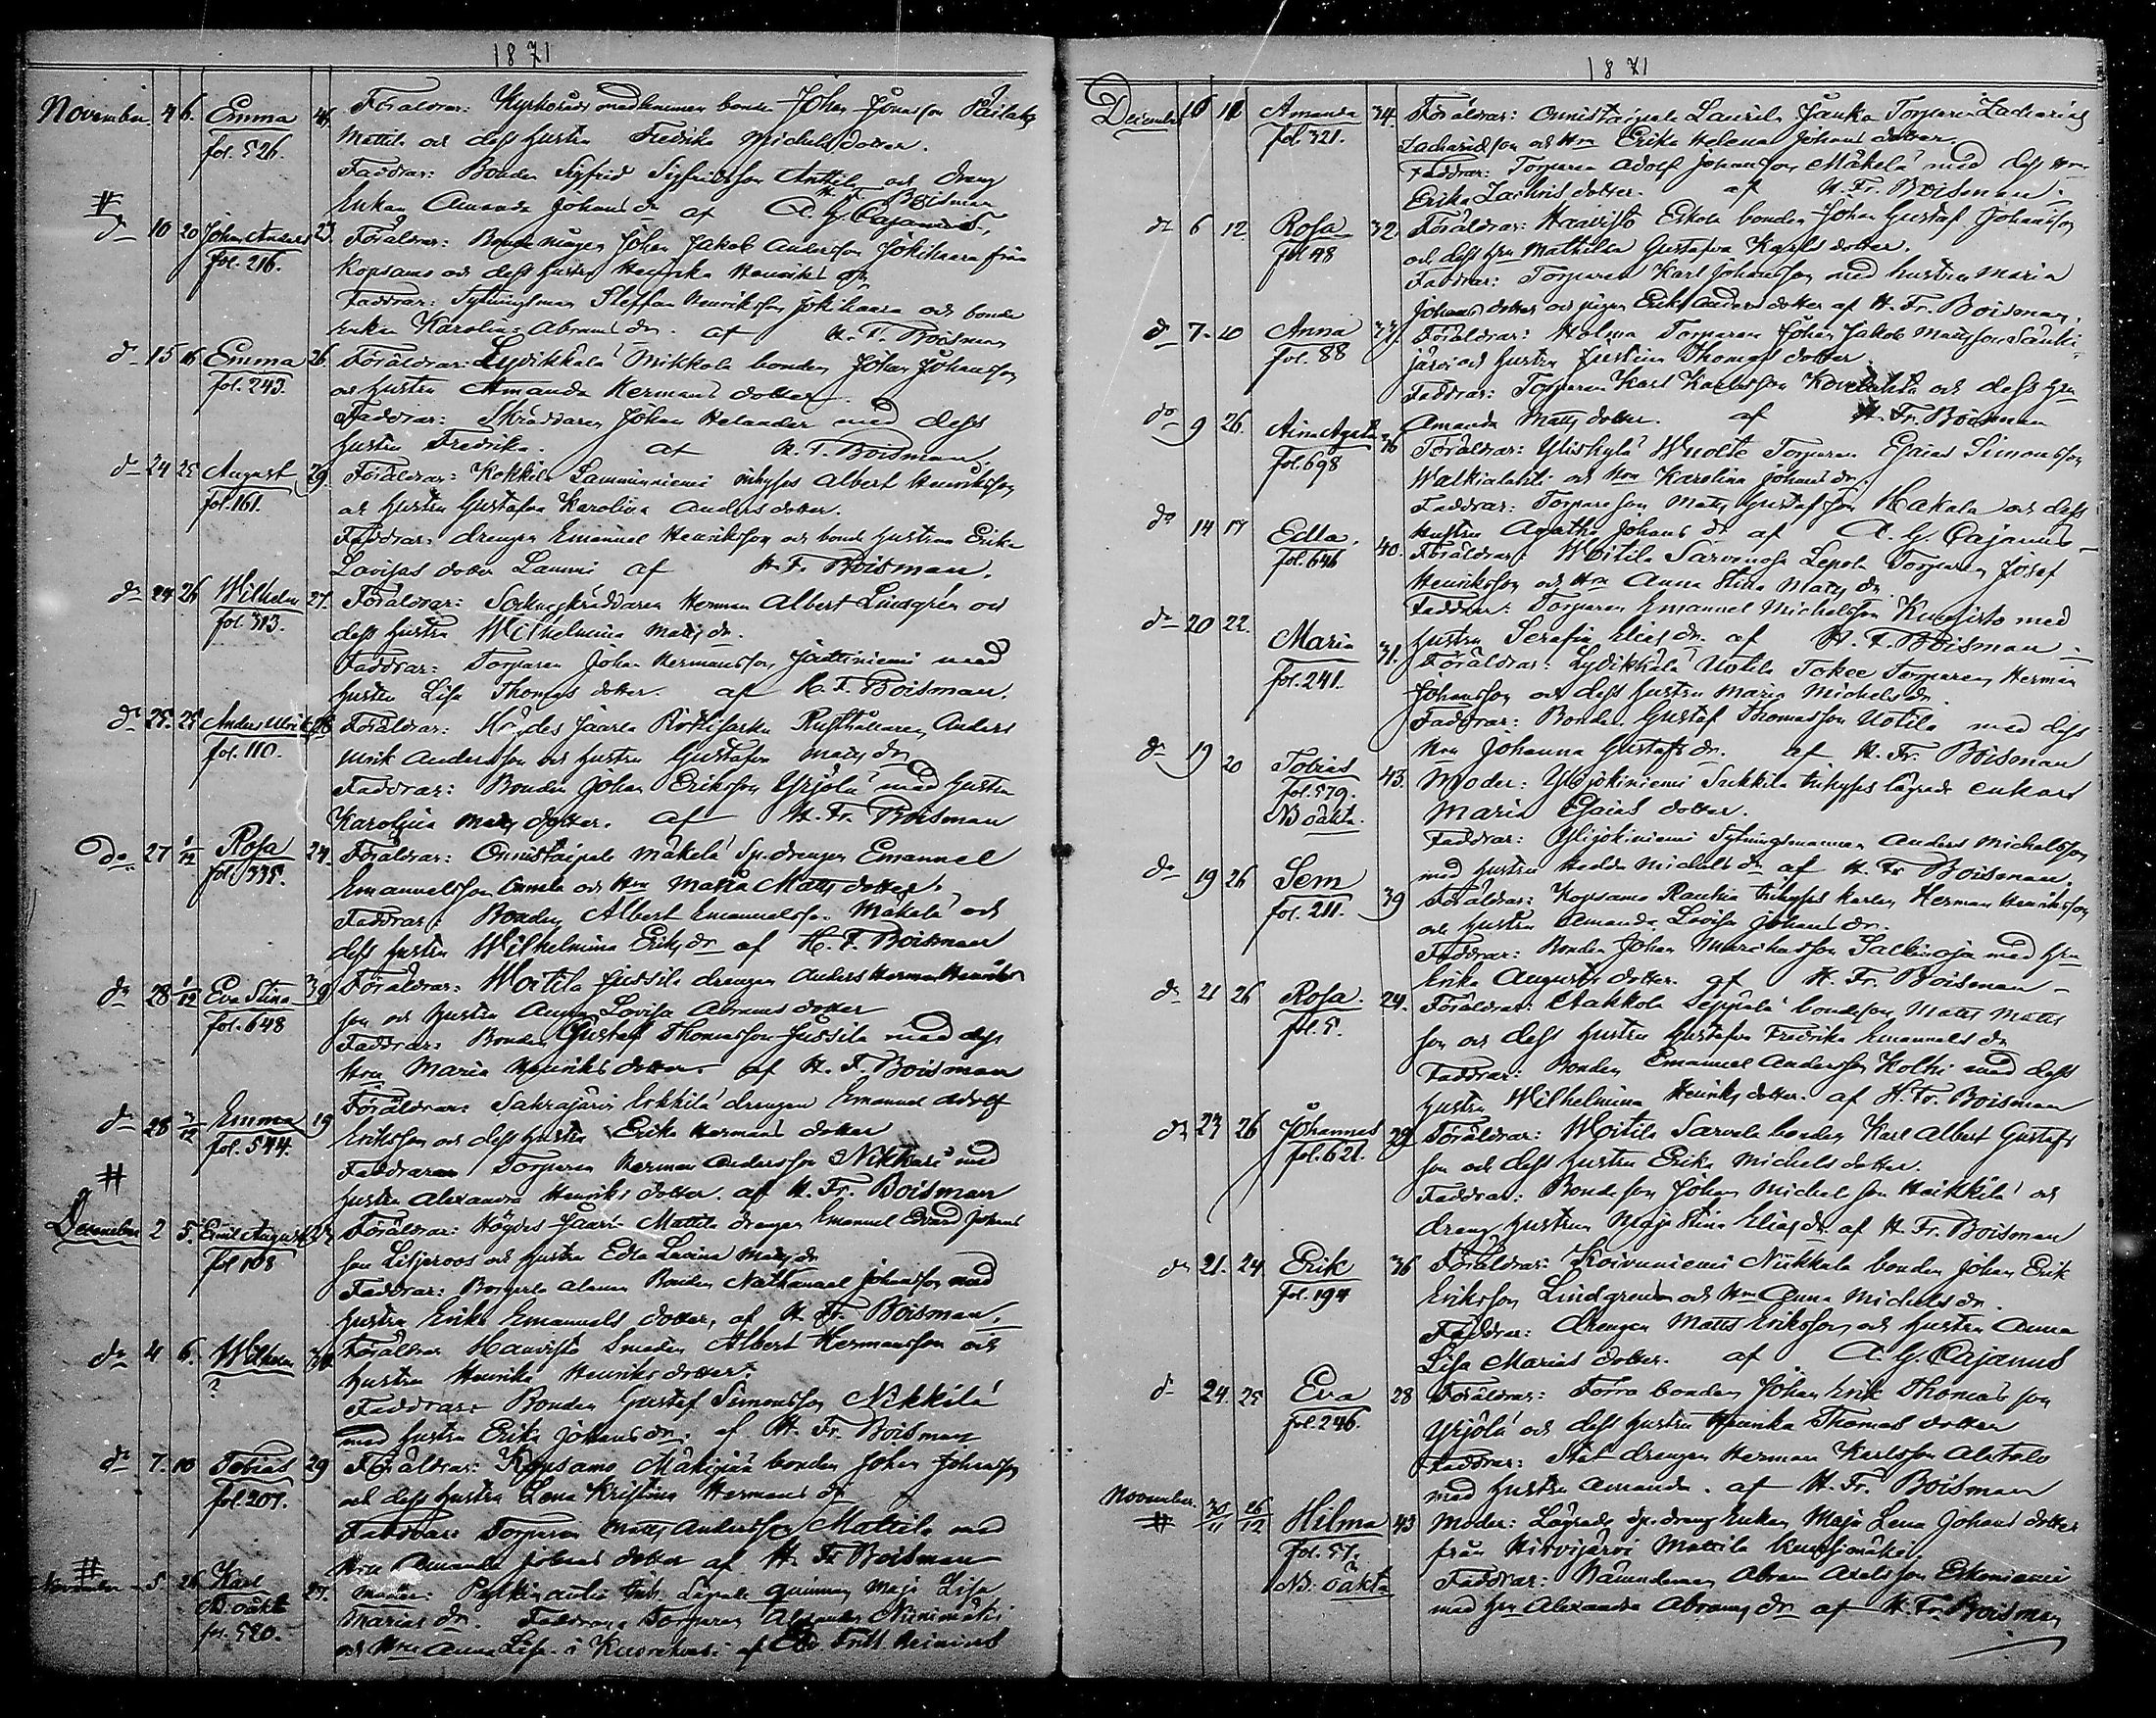 1871
November 4 6. Emma 45 Föräldrar: Kyrkoråds medlemmen bonde Johan Jonasson Pailake
fol. 526. Mattila och dess hustru Fredrika Michels dotter.
Faddrar: Bonden Sigfrid Sigfridsson Anttila och dreng
Enkan Amanda Johans dr af H. F. Boisman
#
A. G. Cajanus,
do 10 20 Johan Anders 23 Föräldrar: Bonde mågen Johan Jakob Andersson Jokihaara från
fol. 216. Kopsamo och dess hustru Henrika Henriks dr
Faddrar: Sytningsman Steffan Henriksson Jokihaara och bonde
Enkan Karolina Abrams dr. af H. F. Boisman
do 15 16 Emma 26. Föräldrar: Lydikkälä Mikkola bonden Johan Johansson
fol. 243. och hustru Amanda Hermans dotter.
Faddrar: Skräddaren Johan Helander med dess
hustru Fredrika. af H. F. Boisman
do 24 25 August 29. Föräldrar: Kokkila Lamminniemi inhyses Albert Henriksson
fol. 161. och hustru Gustafva Karolina Anders dotter.
Faddrar: drengen Emanuel Henriksson och bonde hustrun Erika
Lovisas dotter Lammi af H. F. Boisman.
do 24 26 Wilhelm 27. Föräldrar: Sockneskräddaren Herman Albert Lindgrén och
fol. 313. dess hustru Wilhelmina Matts dr.
Faddrar: Torparen Johan Hermansson Jättiniemi med
hustru Lisa Thomas dotter. af H. F. Boisman.
do 25. 25 Anders Ulrik 28 Föräldrar: Rusthållaren Anders
fol. 110. Ulrik Andersson och hustru Gustafva Matts dr
Faddrar: Bonden Johan Eriksson Yrjölä med hustru
Karolina Matts dotter. af H. Fr. Boisman
Do 27 1/12 Rosa 24. Föräldrar: Onnistaipale Mäkelä Sp. drengen Emanuel
fol. 335. Emanuelsson och Hru Maria Matts dotter.
Faddrar: Bonden Albert Emanuelsson Mäkelä och
dess hustru Wilhelmina Eriks dr af H. F. Boisman
do 28 1/12 Eva Stina 39 Föräldrar: Woitila Jussila drengen Anders Herman Henriks
fol. 648 son och hustru Anna Lovisa Abrams dotter
Faddrar: Bonden Gustaf Thomasson Jussila med dess
Hru Maria Henriks dotter. af H. F. Boisman
do 28 3/12 Emma 19 Föräldrar: Sahrajärvi Erkkilä drengen Emanuel Adolf
fol. 544. Eriksson och dess hustru Erika Hermans dotter
Faddrar Torparen Herman Andersson Nikkari med
# hustru Alexandra Henriks dotter. af H. Fr. Boisman
December 2 5. Emil August 27 Föräldrar: Mattila drengen Emanuel Edvard Johans
fol 108 son Liljeroos och hustru Edla Lavina Matts dr
Faddrar: Bonden Nathanael Johansson med
hustru Erika Emanuels dotter, af H. Fr. Boisman.
do 4 6. Wilhelm Föräldrar Hauvisto Smeden Albert Hermansson och
? hustru Henrika Henriks dotter.
Faddrar: Bonden Gustaf Simonsson Nikkilä
med hustru Erika Johans dr. af H. Fr. Boisman
do 7. 10 Tobias 29 Föräldrar: Kopsamo Mäkipää bonden Johan Johansson
fol. 207. och dess hustru Lena Kristina Hermans dr
Faddrar: Torparen Matts Andersson Mattila med
# Hru Amanda Johans dotter af H. Fr Boisman
November 5 26 Karl 27. Moder: qvinnan Maja Lisa
NB. oäkta Marias dr. Faddrar: Torparen Alexander Niinimäki
fol. 520. och Hru Anna Lisa i af
1871
December 10 12 Amanda 34. Föräldrar: Onnistaipale Laurila Jauka Torparen Zacharias
fol. 321. Zachariæson och Hru Erika Helena Johans dotter.
Faddrar: Torparen Adolf Johansson Mäkelä med dess Hru
Erika Zachris dotter. af H. Fr. Boisman.
do 6 12 Rosa 32. Föräldrar: Haavisto Eskola bonden Johan Gustaf Johansson
fol 48 och dess Hru Mathilda Gustafva Karls dotter.
Faddrar: Torparen Karl Johansson med hustru Maria
Johans dotter och pigan Erika Anders dotter af H. Fr. Boisman.
do 7. 10 Anna 37. Föräldrar: Holma Torparen Johan Jakob Mattsson Sänki-
fol. 88 järvi och hustru Justina Thomas dotter.
Faddrar: Torparen Karl Karlsson och dess Hru
Amanda Matts dotter. af H. Fr. Boisman
do 9 26. Aina Agata 26 Föräldrar: Yliskylä Wuolte Torparen Esaias Simonsson
fol. 698 Walkialahti och Hru Karolina Johans dr.
Faddrar: Torpareson Matts Gustafsson Hakala och dess
hustru Agatha Johans dr af A. G. Cajanus
do 14 17 Edla. 40. Föräldrar: Woitila Sarvinoja Lepola Torparen Josef
fol. 646 Henriksson och Hru Anna Stina Matts dr
Faddrar: Torparen Emanuel Michelsson Kuusisto med
hustru Serafia Elias dr. af H. F. Boisman
do 20 22. Maria 31. Föräldrar: Lydikkälä Uotila Tokee Torparen Herman
fol. 241. Johansson och dess hustru Maria Michels dr
Faddrar: Bonden Gustaf Thomasson Uotila med dess
Hru Johanna Gustafs dr. af H. Fr. Boisman
do 19 20 Tobias 43. Moder: Ylijokiniemi Sukkila inhyses lägrade enkan
fol. 579. Maria Esaias dotter.
NB oäkta. Faddrar: Ylijokiniemi Sytningsmannen Anders Michelsson
med hustru Hedda Michels dr af H. Fr Boisman.
do 19 26 Sem 39 Föräldrar: Kopsamo Raukia inhyses karlen Herman Henriksson
fol. 211. och hustru Amanda Lovisa Johans dr.
Faddrar: Bonden Johan Sallinoja med Hru
Erika Augusta dotter. af H. Fr. Boisman
do 21 26 Rosa. 24. Föräldrar: Ahkola Seppälä bondeson Matts Matts
fol. 5. son och dess hustru Gustafva Fredrika Emanuels dr
Faddrar: Bonden Emanuel Andersson Kolhi med dess
hustru Wilhelmina Henriks dotter. af H. Fr. Boisman
do 23 26 Johannes 29 Föräldrar: Woitila Sarvela bonden Karl Albert Gustafs
fol. 621. son och dess hustru Erika Michels dotter.
Faddrar: Bondeson Johan Michelsson Heikkilä och
dreng hustrun Maja Stina Elias dr af H. Fr. Boisman
do 21. 24 Erik 36 Föräldrar: Koivuniemi Niikkala bonden Johan Erik
fol. 194 Eriksson Lindgren och Hru Anna Michels dr.
Faddrar: drengen Matts Eriksson och hustru Anna
Lisa Marias dotter. af A. G. Cajanus
do 24. 25 Eva 28 Föräldrar: Torro bonden Johan Erik Thomas son
fol. 246. Yrjölä och dess hustru Henrika Thomas dotter
Faddrar: Stat drengen Herman Karlsson Alatalo
med hustru Amanda. af H. Fr. Boisman
November 30/11 26/12 Hilma 43 Moder: Lägrade sp. dreng Enkan Maja Lena Johans dotter
# fol. 57. från Hirvijärvi Mattila
NB. oäkta Faddrar: Nämndeman Abram Axelsson Eskoniemi
med Hru Alexandra Abrams dr af H. Fr. Boisman